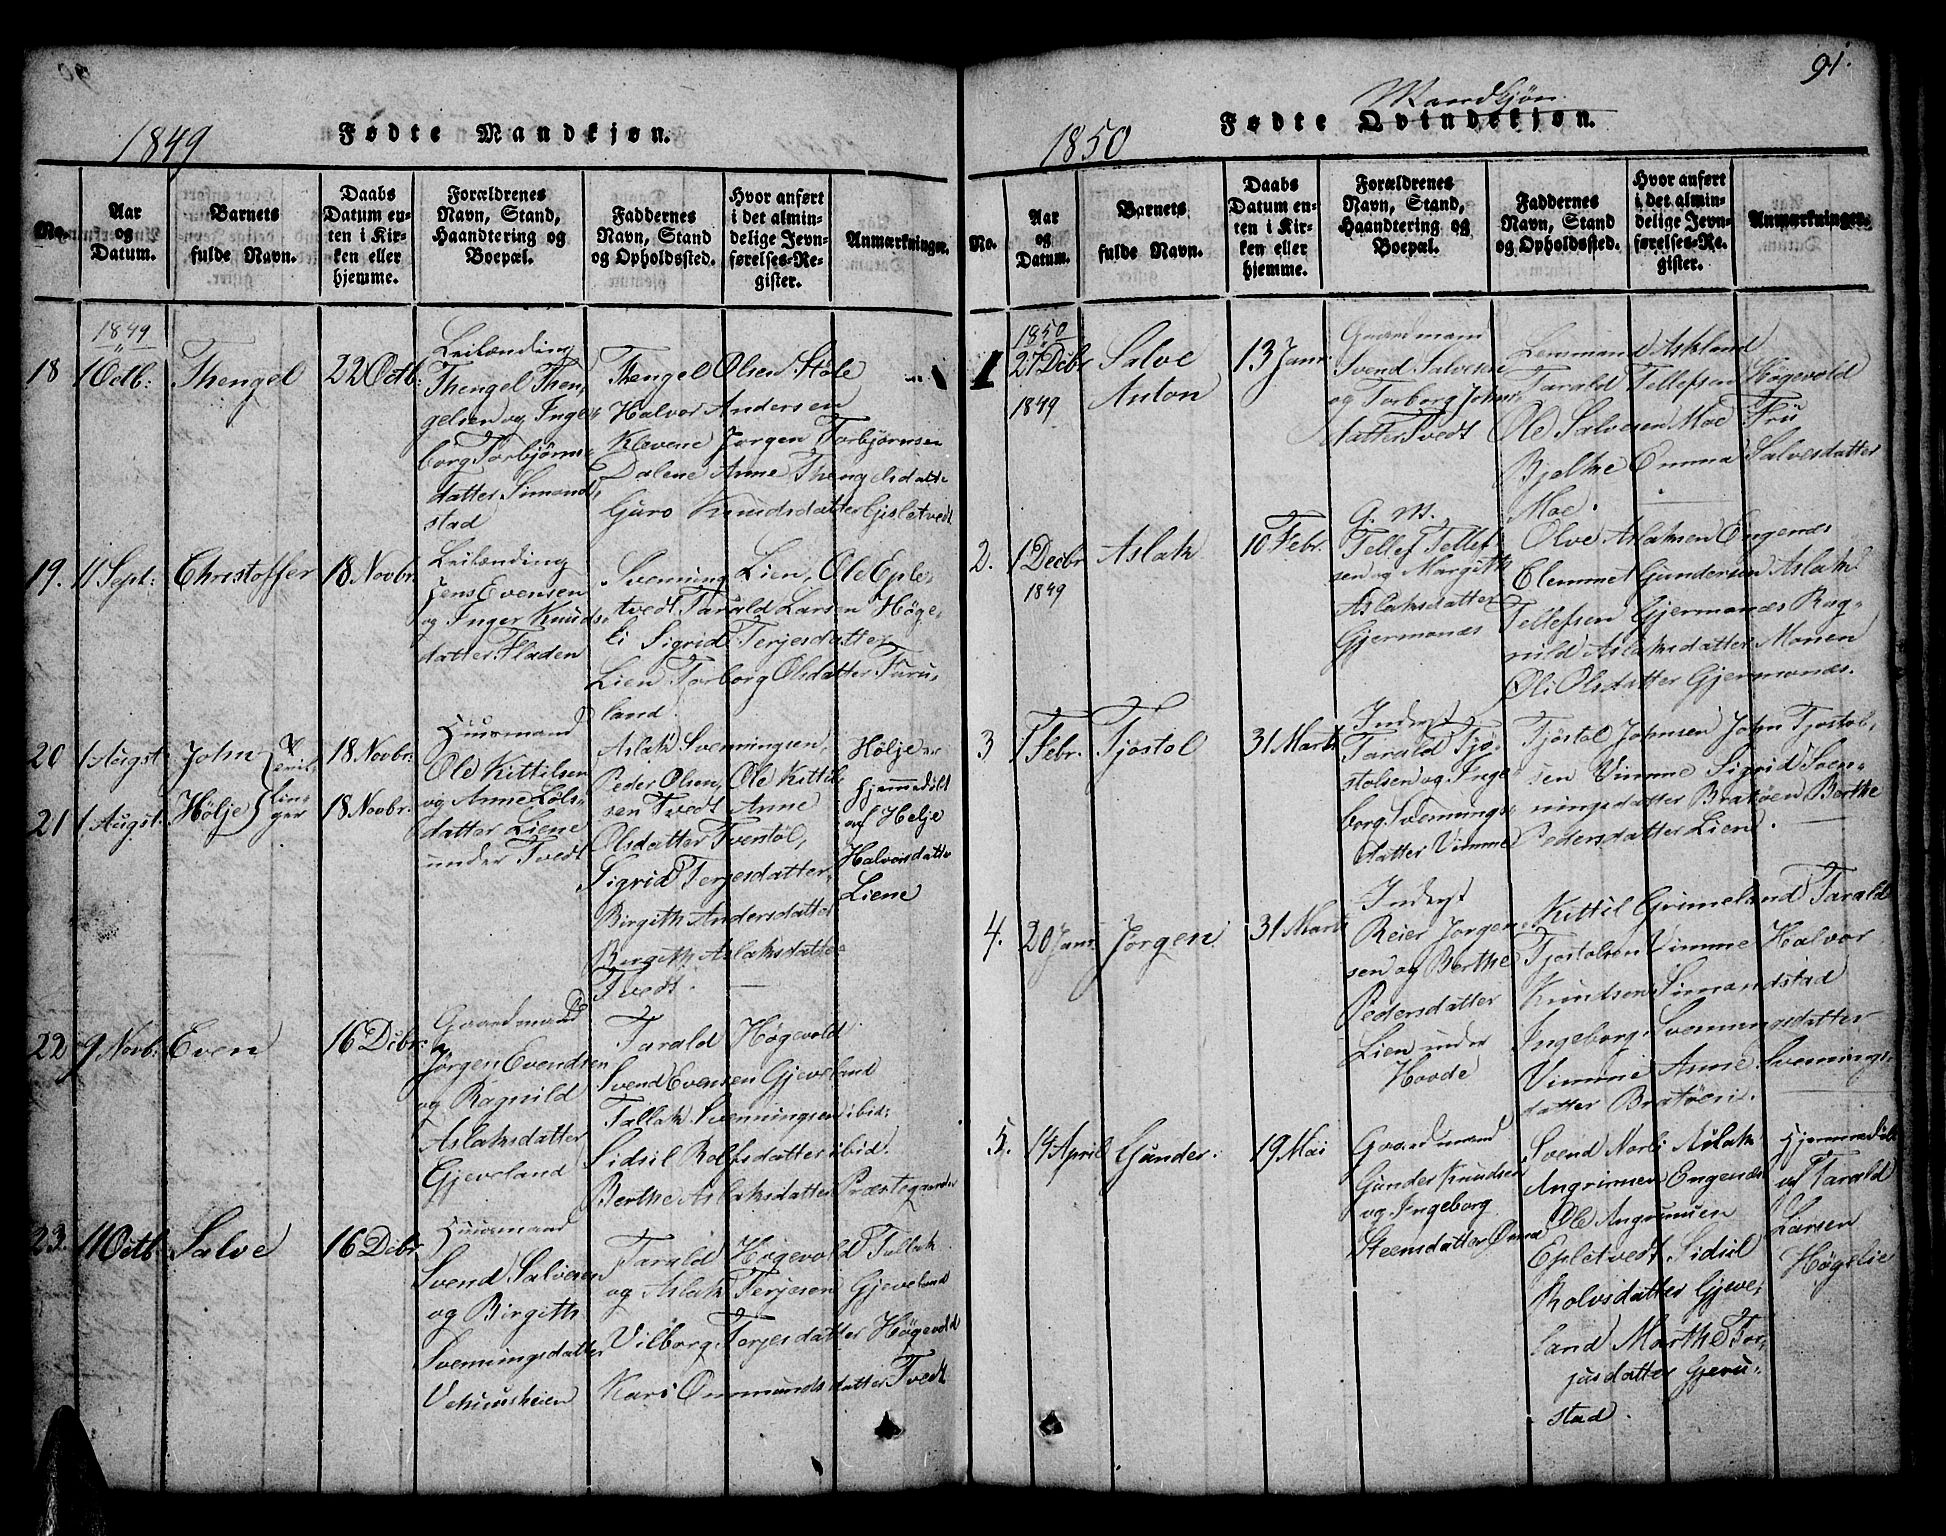 90
1849
Fødte Mandkjøn.
No.
Aar
og
Datum.
Barnets
fulde Navn.
Daabs
Datum en-
ten i Kir-
ken eller
hjemme.
Forældrenes
Navn, Stand,
Haandtering og
Boepæl.
Faddernes
Navn, Stand
og Opholdssted.
Hvor anført
i det almin-
delige Jevn-
førelses-Re-
gister.
Anmærkninger.
1849
18
1 Octb:
Thengel
22 Octb:
Leilænding
Thengel Then-
gelsen og Inge-
borg Torbjørns-
datter Simond-
stad
Thengel Olsen Støle
Halvor Andersen
Klevene Jørgen Torbjørnsen
Dalene Anne Thengelsdatt-
Guro Knudsdatter Gisletvedt
19.
11 Sept:
Christoffer
18 Novbr.
Leilænding
Jens Evensen
og Inger Knuds-
datter Fladen
Svenning Lien, Ole Eple-
tvedt Tarald Larsen Høge-
li Sigrid Terjesdatter
Lien Torborg Olsdatter Furu-
land.
20
1 Augst
John
18 Novbr:
21
1 Augst.
Hølje
18 Novbr:
Tvil-
lin-
ger
Huusmand
Ole Kittilsen
og Anne Lols-
datter Liene
under Tvedt
Aslak Svenningsen,
Peder Olsen, Ole Kittil-
sen Tvedt Anne
Olsdatter Tventøl,
Sigrid Terjesdatter
Birgith Andersdatter
Birgith Aslaksdatter
Tvedt.
Hølje er
hjemmedöbt
af Helje
Halvorsdatter
Liene
22
9 Novb:
Even
16 Decbr:
Gaardmand
Jørgen Evendsen
og Ragnild
Aslaksdatter
Gjeveland
Tarald Høgevold
Svend Evensen Gjeveland
Tallak Svenningsen ibid:
Sidsil Rolfsdatter ibid.
Berthe Aslaksdatter Præstegaarden
23.
11 Octb:
Salve
16 Decbr
Huusmand
Svend Salvesen
og Birgith
Svenningsdatter
Vehuusheien
Tarald Høgevold Tallak
og Aslak Terjesen Gjeveland
Vilborg Terjesdatter Høgevold
Kari Ommundsdatter Tvedt
91.
1850
Mandkjøn.
Fødte Qvindekjøn.
No.
Aar
og
Datum.
Barnets
fulde Navn.
Daabs
Datum en-
ten i Kir-
ken eller
hjemme.
Forældrenes
Navn, Stand,
Haandtering og
Boepæl.
Faddernes
Navn, Stand
og Opholdssted.
Hvor anført
i det almin-
delige Jevn-
førelses-Re-
gister.
Anmærkninger.
1850
1
27 Decbr
1849
Salve
Anton
13 Janr.
Gaardmand
Svend Salvesen
og Torborg Johns-
datter Tvedt
Lensmand Askland
Tarald Tellefsen Høgevold
Ole Salvesen Moe Fru
Bjelke Emma Salvesdatter
Moe.
2.
1 Decbr
1849
Aslak
10 Febr.
G. M.
Tellef Tellef-
sen og Margith
Aslaksdatter
Gjermonæs
Olve Aslaksen Engenæs
Clemmet Gundersen Aslak
Tellefsen Gjermonæs Rag-
nild Aslaksdatter Monen
Øli Olsdatter Gjermonæs.
3
1 Febr.
Tjøstol
31 Marts
Inderst
Tarald Tjø-
stolsen og Inge-
borg Svennings-
datter Vimme
Tjøstol Johnsen John Tjostol-
sen Vimme Sigrid Sven-
ningsdatter Bratøen Berthe
Pedersdatter Lien.
4.
20 Janr.
Jørgen
31 Marts
Inderst
Reier Jorgen-
sen og Berthe
Pedersdatter
Lien under
Hovde
Kittil Grimeland Tarald
Tjostolsen Vimme Halvor
Knudsen Simondstad
Ingeborg Svenningsdatter
Vimme Anne Svennings-
datter Bratøen.
5.
14 April
Gunder.
19 Mai
Gaardmand
Gunder Knudsen
og Ingeborg
Steensdatter
Svend Norli Aslak
Angrimsen Engenæs
Ole Angrimsen
Epletvedt Sidsil
Rolvsdatter Gjeve-
land Marthe Tor-
jusdatter Gjeru-
stad.
Hjemmedöbt
af Tarald
Larsen
Høgelie